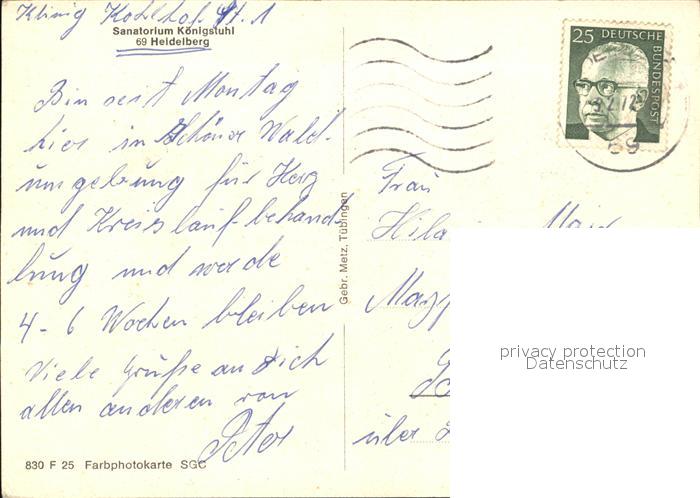 Klinig Kohlhof St. 1
Sanatorium Königstuhl
69 Heidelberg
Bin seit Montag
hier in schöner Wald-
umgebung für Herz
und Kreislauf-behand-
lung und werde
4-6 Wochen bleiben
Viele Grüße an Dich
allen anderen von
Peter
830 F 25 Farbphotokarte SGC
Gebr. Metz, Tübingen
25 DEUTSCHE
BUNDESPOST
69
Frau
über
privacy protection
Datenschutz